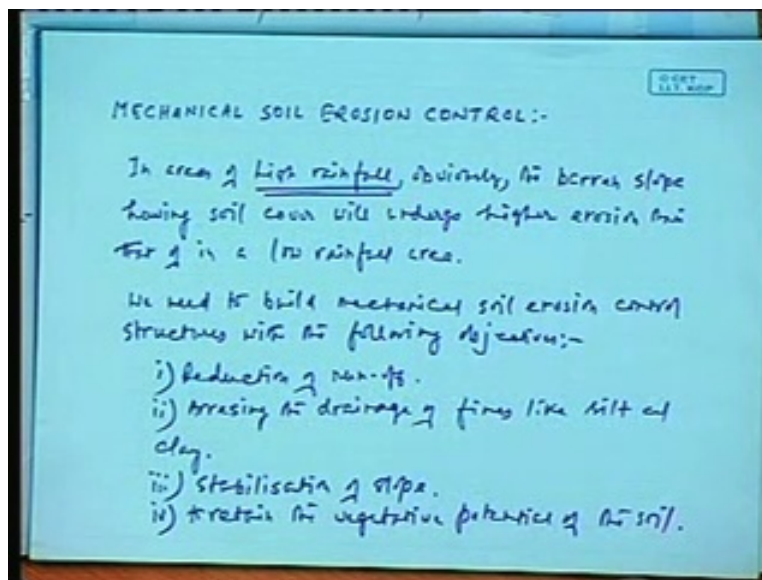 CET
I.I.T. KGP
MECHANICAL SOIL EROSION CONTROL:-
In areas of high rainfall, obviously, the barren slope
having soil cover will undergo higher erosion than
that of in a low rainfall area.
We need to build mechanical soil erosion control
structures with the following objectives:-
i) Reduction of run-off.
ii) Arresing the drainage of fines like silt and
clay.
iii) Stabilisation of slope.
iv) to retain the vegetative potential of the soil.